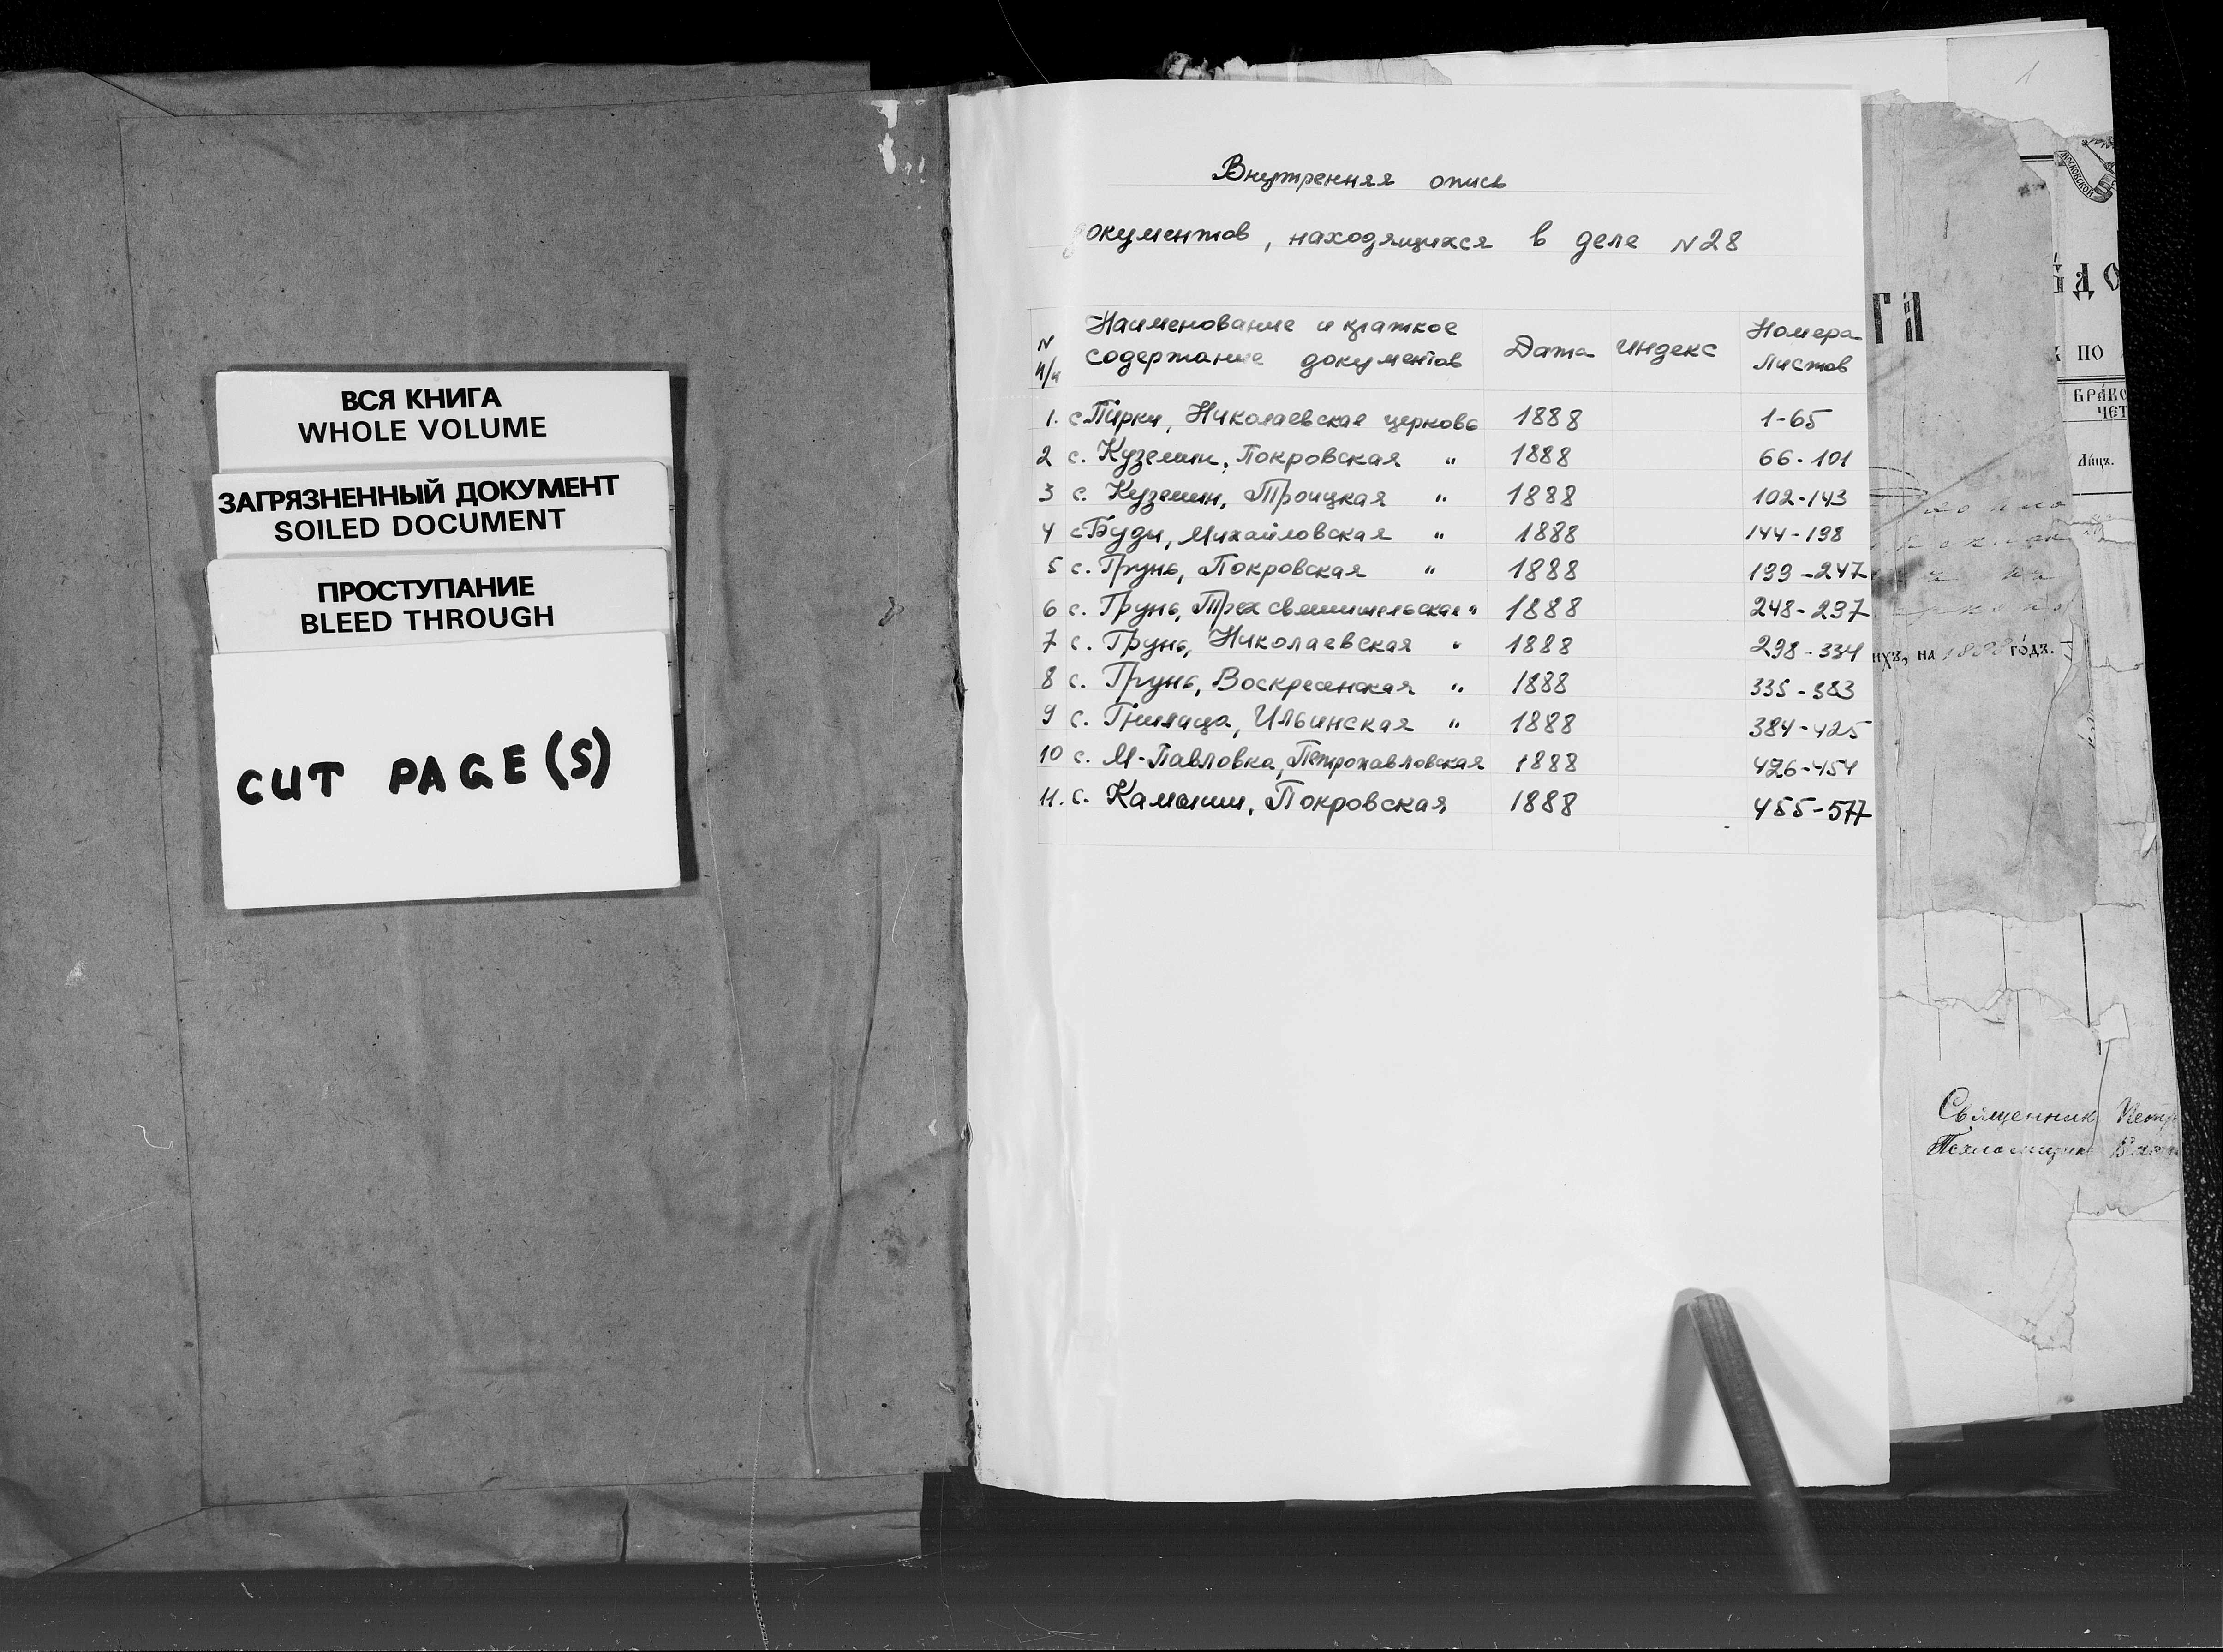 ВСЯ КНИГА
WHOLE VOLUME
ЗАГРЯЗНЕННЫЙ ДОКУМЕНТ
SOILED DOCUMENT
ПРОСТУПАНИЕ
BLEED THROUGH
CUT PAGE(S)
Внутренняя опись
документов, находящихся в деле N28
N п/п Наименование и краткое содержание документов Дата индекс Номера листов
1. с. Пірки, Николаевская церковь 1888 1-65
2 с. Куземин, Покровская " 1888 66-101
3 с. Куземин, Троицкая " 1888 102-143
4 с. Буды, Михайловская " 1888 144-198
5 с. Грунь, Покровская " 1888 199-247
6 с. Грунь, Трехсвятительская " 1888 248-297
7 с. Грунь, Николаевская " 1888 298-334
8 с. Грунь, Воскресенская " 1888 335-383
9 с. Ильинская " 1888 384-425
10 с. М-Павловка, Петропавловская 1888 426-454
11. с. Покровская 1888 455-577
1
МОСКОВСКОЙ
ПО
БРА́КО
ЧЕТ
Ли́цъ.
ихъ, на 1888 го́дъ.
Священник